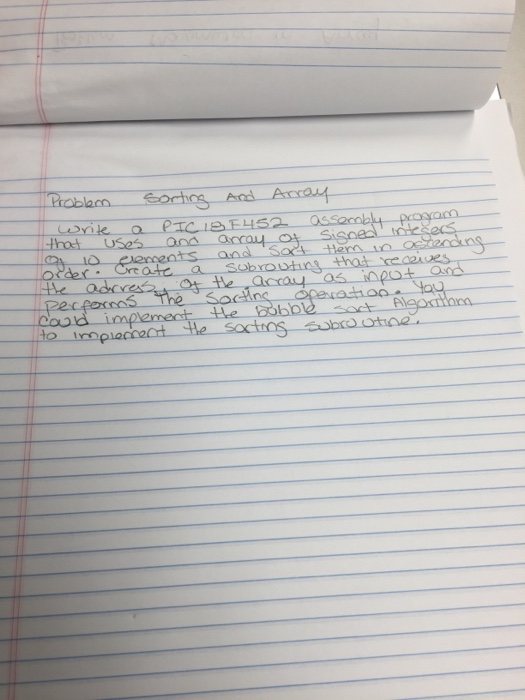 Problem Sorting And Array
Write a PIC18F452 assembly program
that uses and array of signed integers
of 10 elements and sort them in ascending
order. Create a subrouting that receives
the address of the array as input and
performs the sorting operation. You
could implement the bobble sort Algorithm
to implement the sorting subroutine.